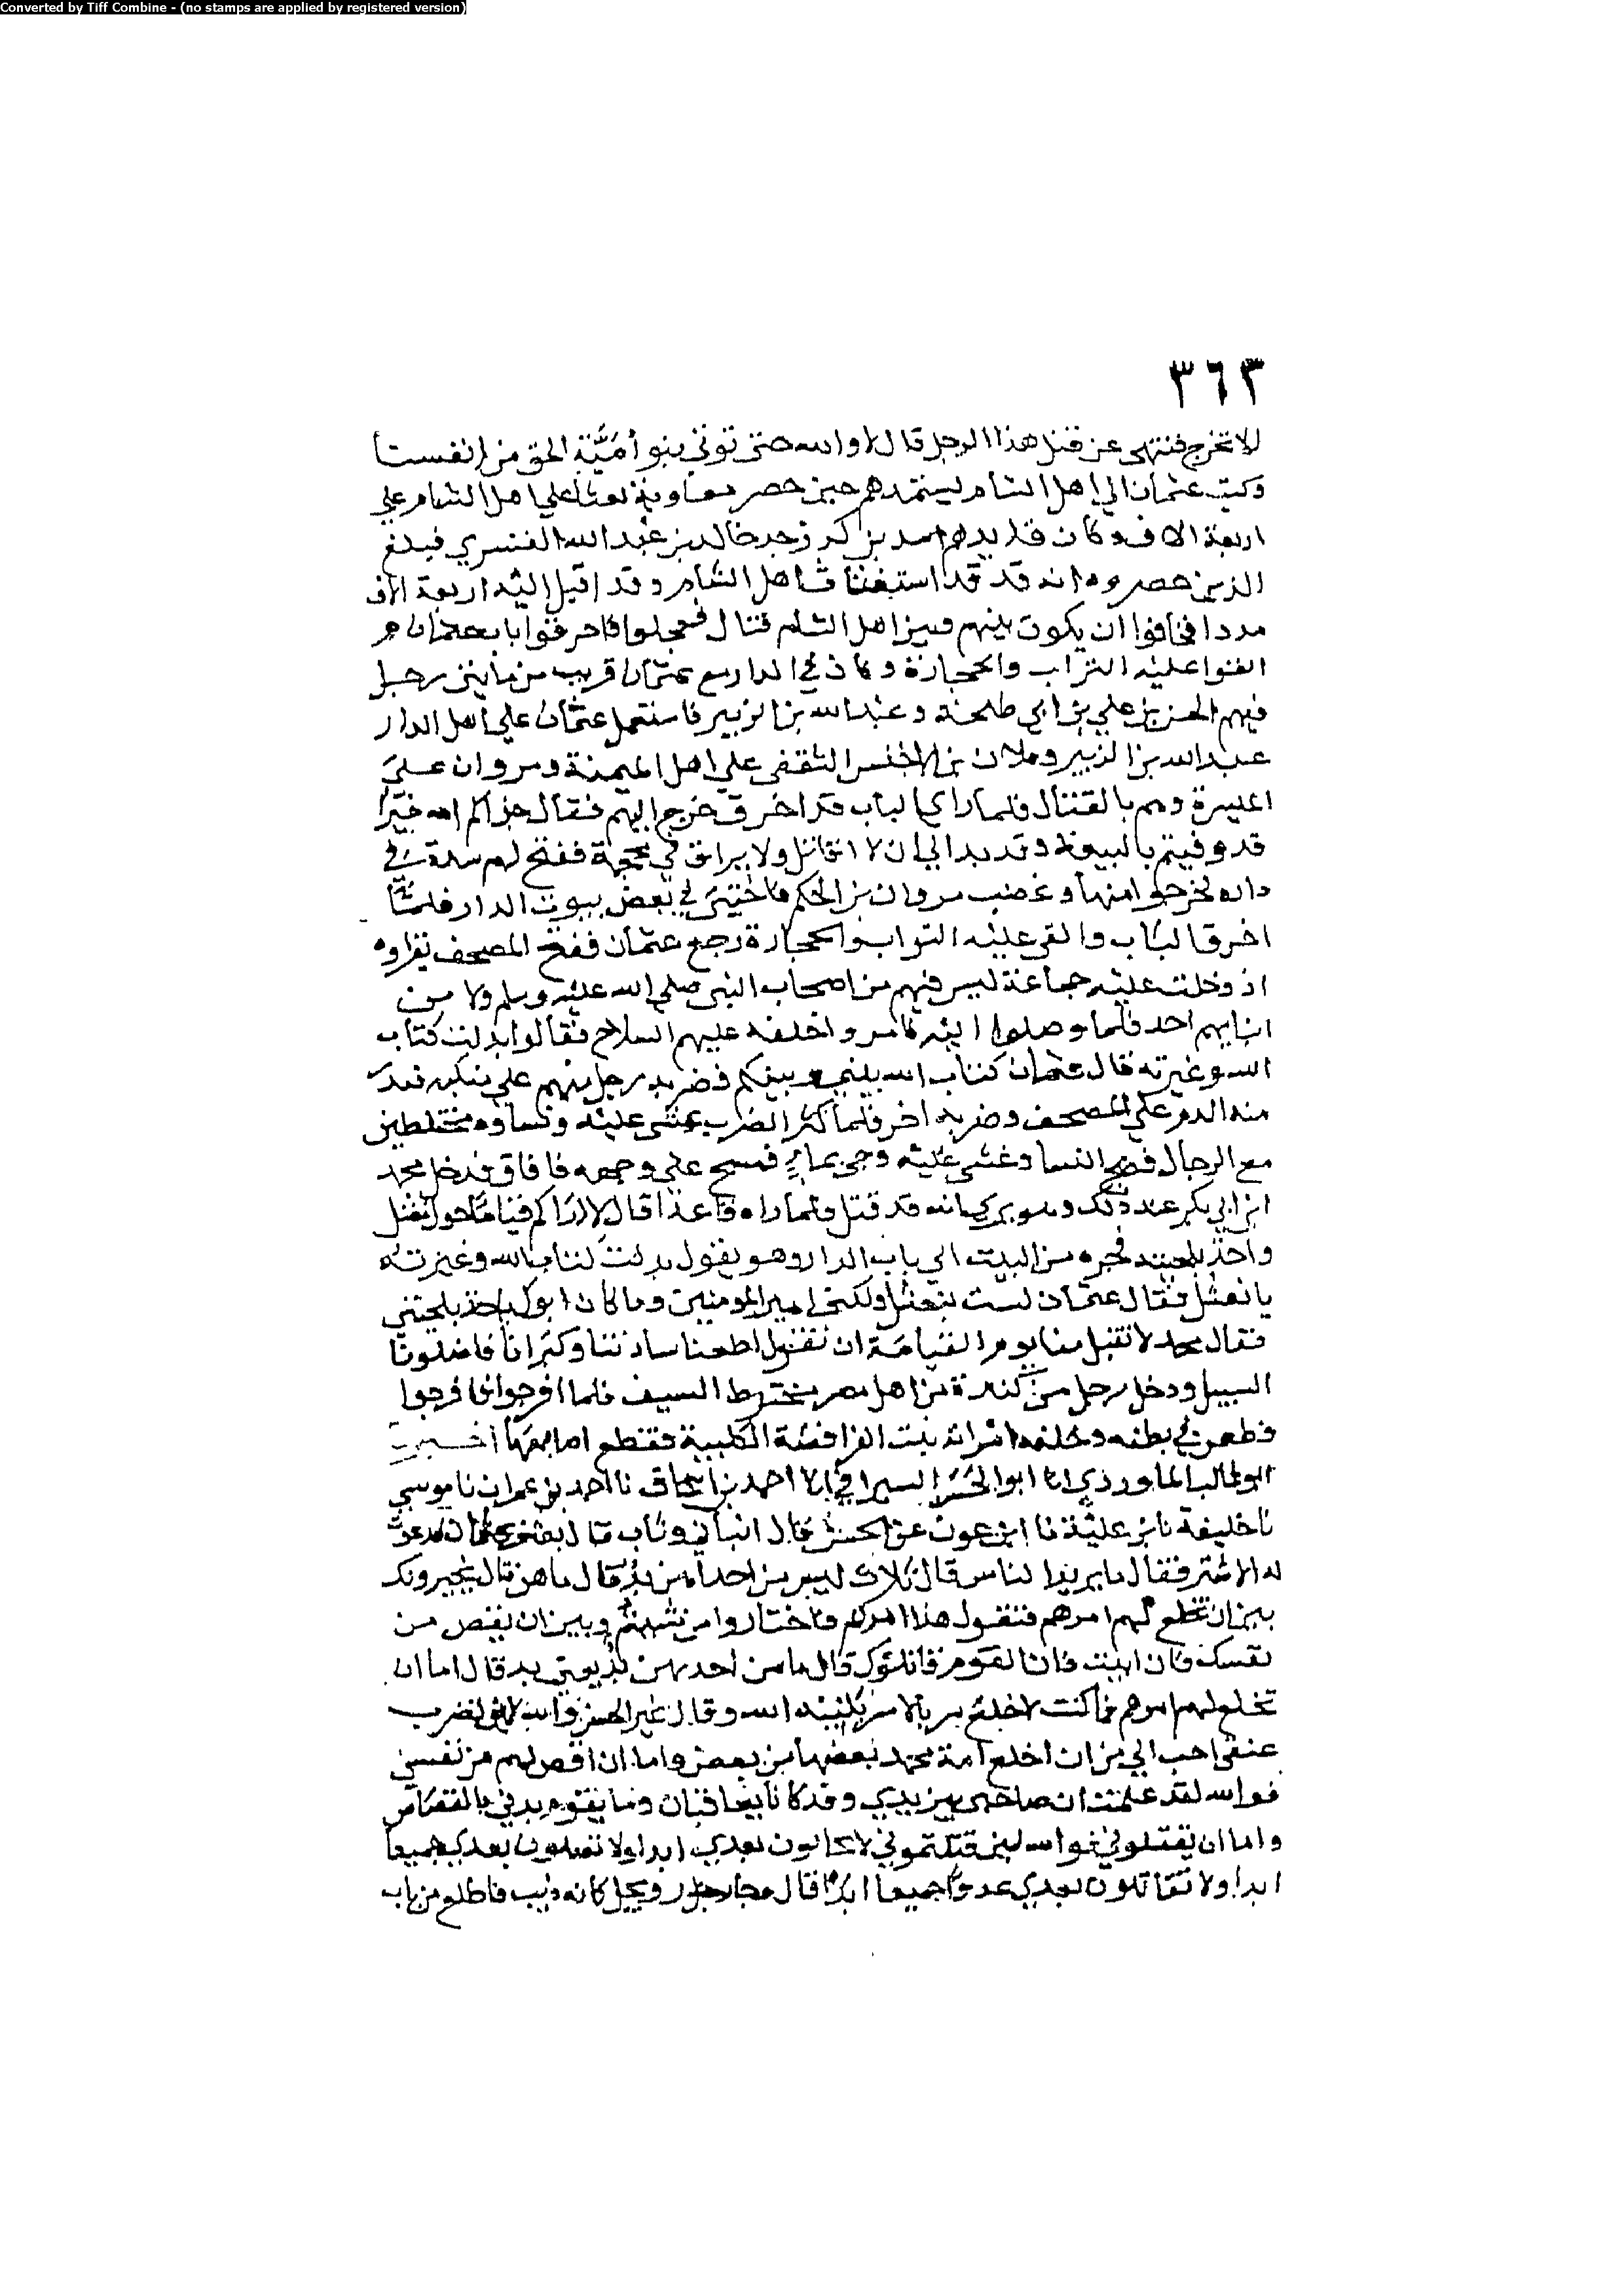 Converted by Tiff Combine - (no stamps are applied by registered version)
٣٦٣
الا تخرج فتنهى عن قتل هذا الرجل قال لا والله حتى توتي بنو أميَّة الحق من انفسها
وكتب عثمان الى اهل الشام يستمدهم حين حصر معاوية بعثا على اهل الشام على
اربعة الاف وكان اسد بن كرز جد خالد بن عبد الله القسري فبلغ
الذين حصروه انه قد قد استبغثنا ثا اهل الشام وقد اقبل اليه اربعة الاف
مددا فخافوا ان يكون بينهم وبين اهل الشام قتال فعجلوا فاحرقوا باب عثمان و
القوا عليه التراب والحجارة وكان في الدار مع عثمان قريب من مايتي رجل
فيهم الحسن بن علي بن ابي طلحة وعبد الله بن الزبير فاستعمل عثمان على اهل الدار
عبد الله بن الزبير بن الاخنس الثقفي على اهل الميمنة ومروان على
الميسرة وهم بالقتال فلما راى الباب قد احرق خرج اليهم فقال جزاكم الله خيرا
قد وفيتم بالبيعة وقد بدا لي ان لا اقاتل ولا يراق في محجمة ففتح لهم سدة في
داره فخرجوا منها وغضب مروان بن الحكم فاختبى في بعض بيوت الدار فلما
احرق الباب والقي عليه التراب والحجارة رجع عثمان ففتح المصحف يقراوه
اذ دخلت عليه جماعة ليس فيهم من اصحاب النبي صلى الله عليه وسلم ولا من
ابنايهم احد فلما وصلوا اليه قاموا خلفه عليهم السلاح فقالوا بدلت كتاب
الله وغيرته قال عثمان كتاب الله بيني وبينكم فضربه رجل منهم على منكبه فبدر
منه الدم على المصحف وضربه اخر فلما كثر الضرب غشي عليه ونساوه مختلطين
مع الرجال فصيح النسا وغشي عليه وجي بماءٍ فمسح على وجهه فافاق فدخل محمد
ابن ابي بكر عند ذلك وهو يرى انه قد قتل فلما راه قاعدا قال الا اراكم قياما حول نعثل
واخذ بلحيته فجره من البيت الى باب الدار وهو يقول بدلت كتاب الله وغيرته
يا نعثل فقال عثمان لست بنعثل ولكني امير المومنين وما كان ابوك ياخذ بلحيتي
فقال محمد لا تقبل منا يوم القيامة ان نقول اطعنا سادتنا وكبرانا فاضلونا
السبيل ودخل رجل من كندة من اهل مصر مخترط السيف فلما افرجوا افرجوا
فطعن في بطنه وخلفه امراته بنت الفرافصة الكلبية فقطع اصابعها اخبرنا
ابو غالب الماوردي انا ابو الحسن السيرافي انا احمد بن اسحاق نا احمد بن عمران نا موسى
نا خليفة نا بن علية نا ابن عون عن الحسن قال انباني وثاب قال بعثني عثمان فدعوت
له الاشتر فقال ما يريد الناس قال ثلاث ليس من احداهن بُد قال ما هن قال يخيرونك
بين ان تخلع لهم امرهم فتقول هذا امركم فاختاروا من شيتم وبين ان يقتص من
نفسك فان ابيت فان القوم قاتلوك قال ما من احداهن بد قال اما ان
تخلع لهم امرهم فما كنت لاخلع سربالا سربلنيه الله وقال غير الحسن والله لان يضرب
عنقي احب الي من ان اخلع امة محمد بعضها من بعض واما ان اقص لهم من نفسي
فوالله لقد علمت ان صاحبي بين يدي وقد كانا يعاقبان وما يقوم بدني بالقصاص
واما ان يقتلوني فوالله لين قتلتموني لا تحابون بعدي ابدا ولا تصلون بعدي جميعا
ابدا ولا تقاتلون بعدي عدوا جميعا ابدًا قال فجا رجل رويجل كانه ذيب فاطلع من باب